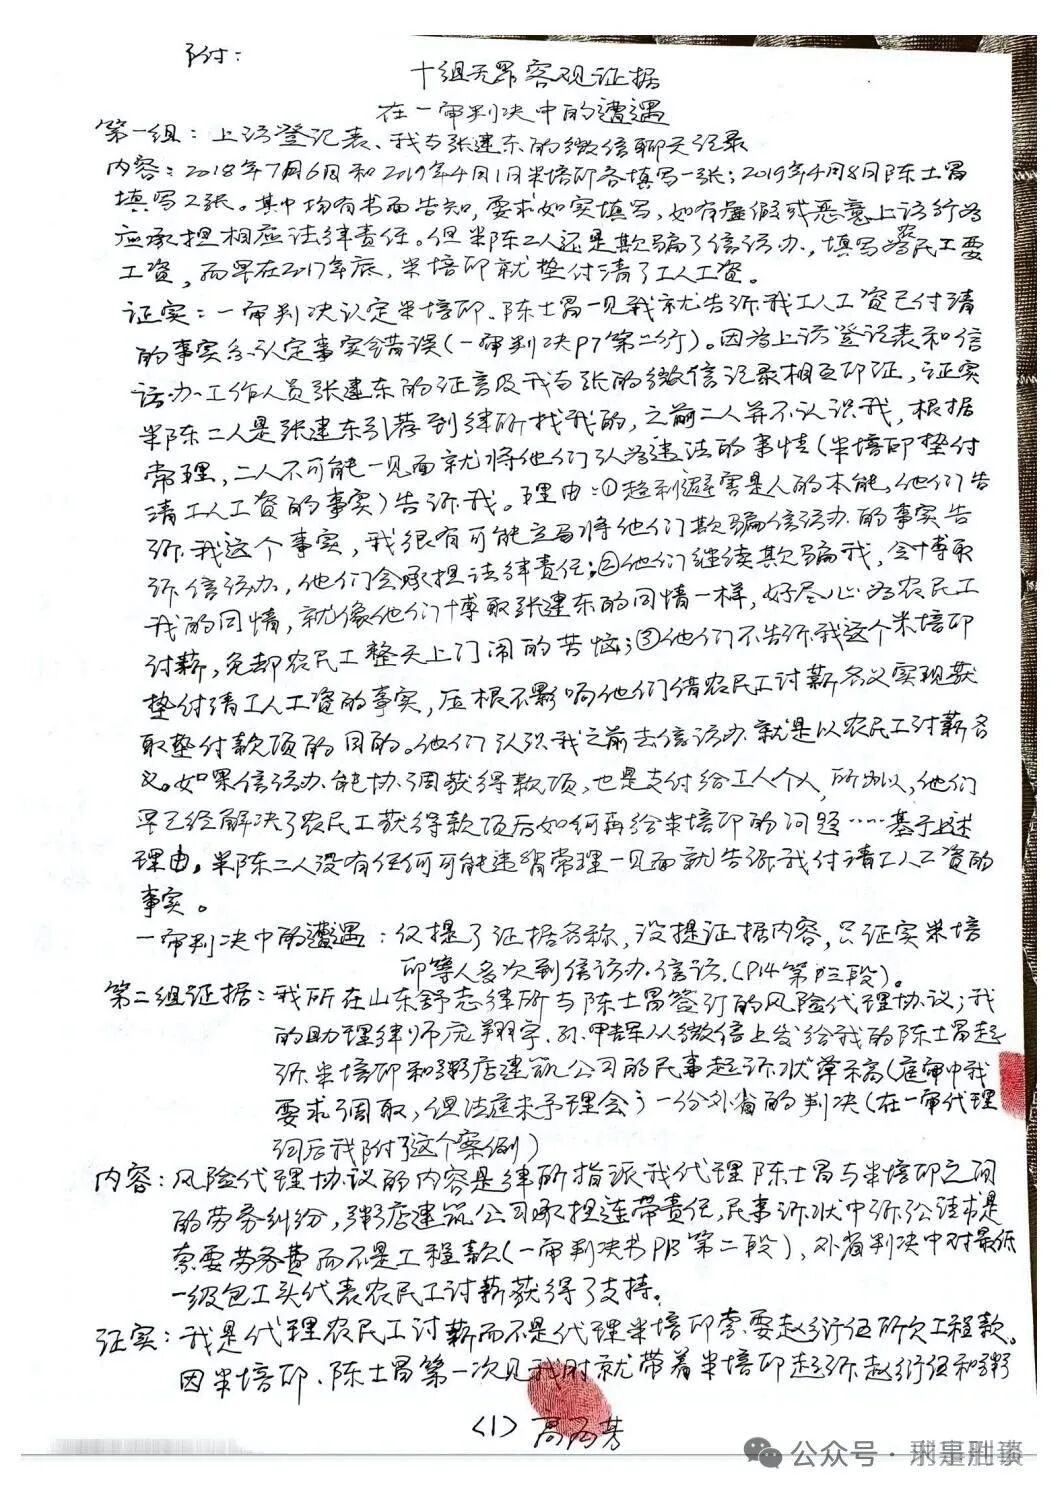 附：
十组无罪客观证据
在一审判决中的遭遇
第一组：上访登记表、我与张建东的微信聊天记录
内容：2018年7月6日和2019年4月1日米培印各填写一张；2019年4月8日陈士昌
填写2张。其中均有书面告知，要求如实填写，如有虚假或恶意上访行为
应承担相应法律责任。但米陈二人还是欺骗了信访办，填写为农民工要
工资，而早在2017年底，米培印就垫付清了工人工资。
证实：一审判决认定米培印、陈士昌一见我就告诉我工人工资已付清
的事实系认定事实错误（一审判决P7第二行）。因为上访登记表和信
访办工作人员张建东的证言及我与张的微信记录相互印证，证实
米陈二人是张建东引荐到律所找我的，之前二人并不认识我，根据
常理，二人不可能一见面就将他们认为违法的事情（米培印垫付
清工人工资的事实）告诉我。理由：①趋利避害是人的本能，他们告
诉我这个事实，我很有可能立马将他们欺骗信访办的事实告
诉信访办，他们会承担法律责任；②他们继续欺骗我，会博取
我的同情，就像他们博取张建东的同情一样，好尽心为农民工
讨薪，免却农民工整天上门闹的苦恼；③他们不告诉我这个米培印
垫付清工人工资的事实，压根不影响他们借农民工讨薪名义实现获
取垫付款项的目的。他们认识我之前去信访办就是以农民工讨薪名
义。如果信访办能协调获得款项，也是支付给工人个人，所以，他们
早已经解决了农民工获得款项后如何再给米培印的问题……基于上述
理由，米陈二人没有任何可能违背常理一见面就告诉我付清工人工资的
事实。
一审判决中的遭遇：仅提了证据名称，没提证据内容，只证实米培
印等人多次到信访办信访。（P14第三段）。
第二组证据：我所在山东舒志律所与陈士昌签订的风险代理协议；我
的助理律师庞翔宇、孙甲军从微信上发给我的陈士昌起
诉米培印和粥店建筑公司的民事起诉状草稿（庭审中我
要求调取，但法庭未予理会）一份外省的判决（在一审代理
词后我附了这个案例）
内容：风险代理协议的内容是律所指派我代理陈士昌与米培印之间
的劳务纠纷，粥店建筑公司承担连带责任，民事诉状中诉讼请求是
索要劳务费而不是工程款（一审判决书P13第二段），外省判决中对最低
一级包工头代表农民工讨薪获得了支持。
证实：我是代理农民工讨薪而不是代理米培印索要赵衍伍所欠工程款。
因米培印、陈士昌第一次见我时就带着米培印起诉赵衍伍和粥
（1）高丙芳
公众号·刑事胜谈